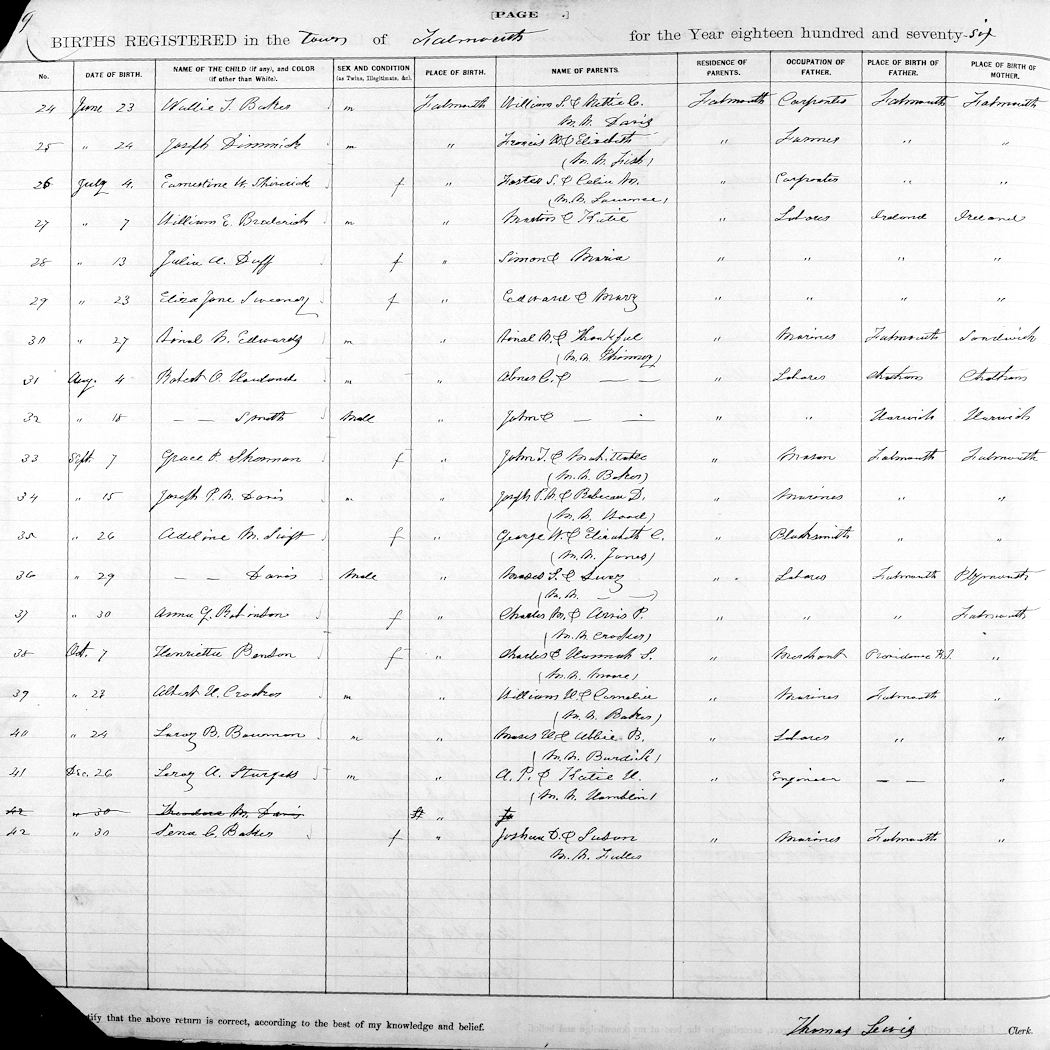 9
[PAGE .]
BIRTHS REGISTERED in the town of Falmouth for the Year eighteen hundred and seventy-six
No. DATE OF BIRTH. NAME OF THE CHILD (if any), and COLOR (if other than White). SEX AND CONDITION (as Twins, Illegitimate, &c.) PLACE OF BIRTH. NAME OF PARENTS. RESIDENCE OF PARENTS. OCCUPATION OF FATHER. PLACE OF BIRTH OF FATHER. PLACE OF BIRTH OF MOTHER.
24 June 23 Wallie T. Baker m Falmouth William S. & Nettie C. Falmouth Carpenter Falmouth Falmouth
M.N. Davis
25 " 24 Joseph Dimmick m " Francis & Elizabeth " Farmer " "
(M.N. Fish)
26 July 4. Earnestine W. Shiverick f " Foster S. & Celia " Carpenter " "
(M.N. Lawrence)
27 " 7 William E. Broderick m " Martin & Katie " Laborer Ireland Ireland
28 " 13 Julia A. Duff f " Simon & Maria " " " "
29 " 23 Eliza Jane Sweeney f " Edward & Mary " " " "
30 " 27 N. Edwards m " N. & Thankful " Mariner Falmouth Sandwich
(M.N. Phinney)
31 Aug. 4 Robert O. m " Abner C. & — — " Laborer Chatham Chatham
32 " 18 — — Smith Male " John & — - " " Harwich Harwich
33 Sept. 7 Grace P. Sherman f " John T. & Mehittable " Mason Falmouth Falmouth
(M.N. Baker)
34 " 15 Joseph P. N. Davis m " Joseph P. N. & Rebecca D. " Mariner " "
(M.N. Hood)
35 " 26 Adeline M. Swift f " George W. & Elizabeth C. " Blacksmith " "
(M.N. Jones)
36 " 29 — — Davis Male " Moses S. & Lucy " Laborer Falmouth Plymouth
(M.N. — —)
37 " 30 Annie G. Robinson f " Charles M. & Arvis P. " " " Falmouth
(M.N. Crocker)
38 Oct. 7 Henrietta Benson f " Charles & Hannah S. " Merchant Providence R.I. "
(M.N. Moore)
39 " 23 Albert H. Crocker m " William H & Cornelia " Mariner Falmouth "
(M.N. Baker)
40 " 24 Leroy B. Bowman m " Moses H & Abbie B. " Laborer " "
(M.N. Burdick)
41 Dec. 26 Leroy A. Sturges m " A. P. & Katie H. " Engineer — — "
(M.N. Hamblin)
42 " 30 Theodore M. Davis "
42 " 30 Lena C. Baker f " Joshua D. & Susan " Mariner Falmouth "
M.N. Fuller
tify that the above return is correct, according to the best of my knowledge and belief.
Thomas Lewis Clerk.